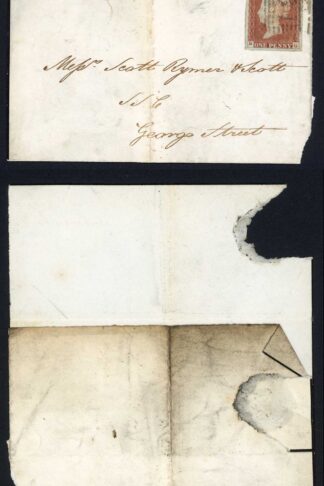 ONE PENNY
Messrs. Scott Rymer & Scott
S S C
George Street